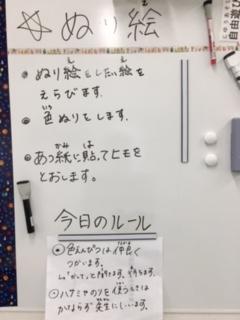 ☆ぬり絵
えら
• ぬり絵をしたい絵を
えらびます。
• 色ぬりをします。
• あつ紙に貼ってヒモを
とおします。
今日のルール
• 色えんぴつは仲良く
つかいます。
• ハサミやのりを使うときは
かならず先生にいいます。